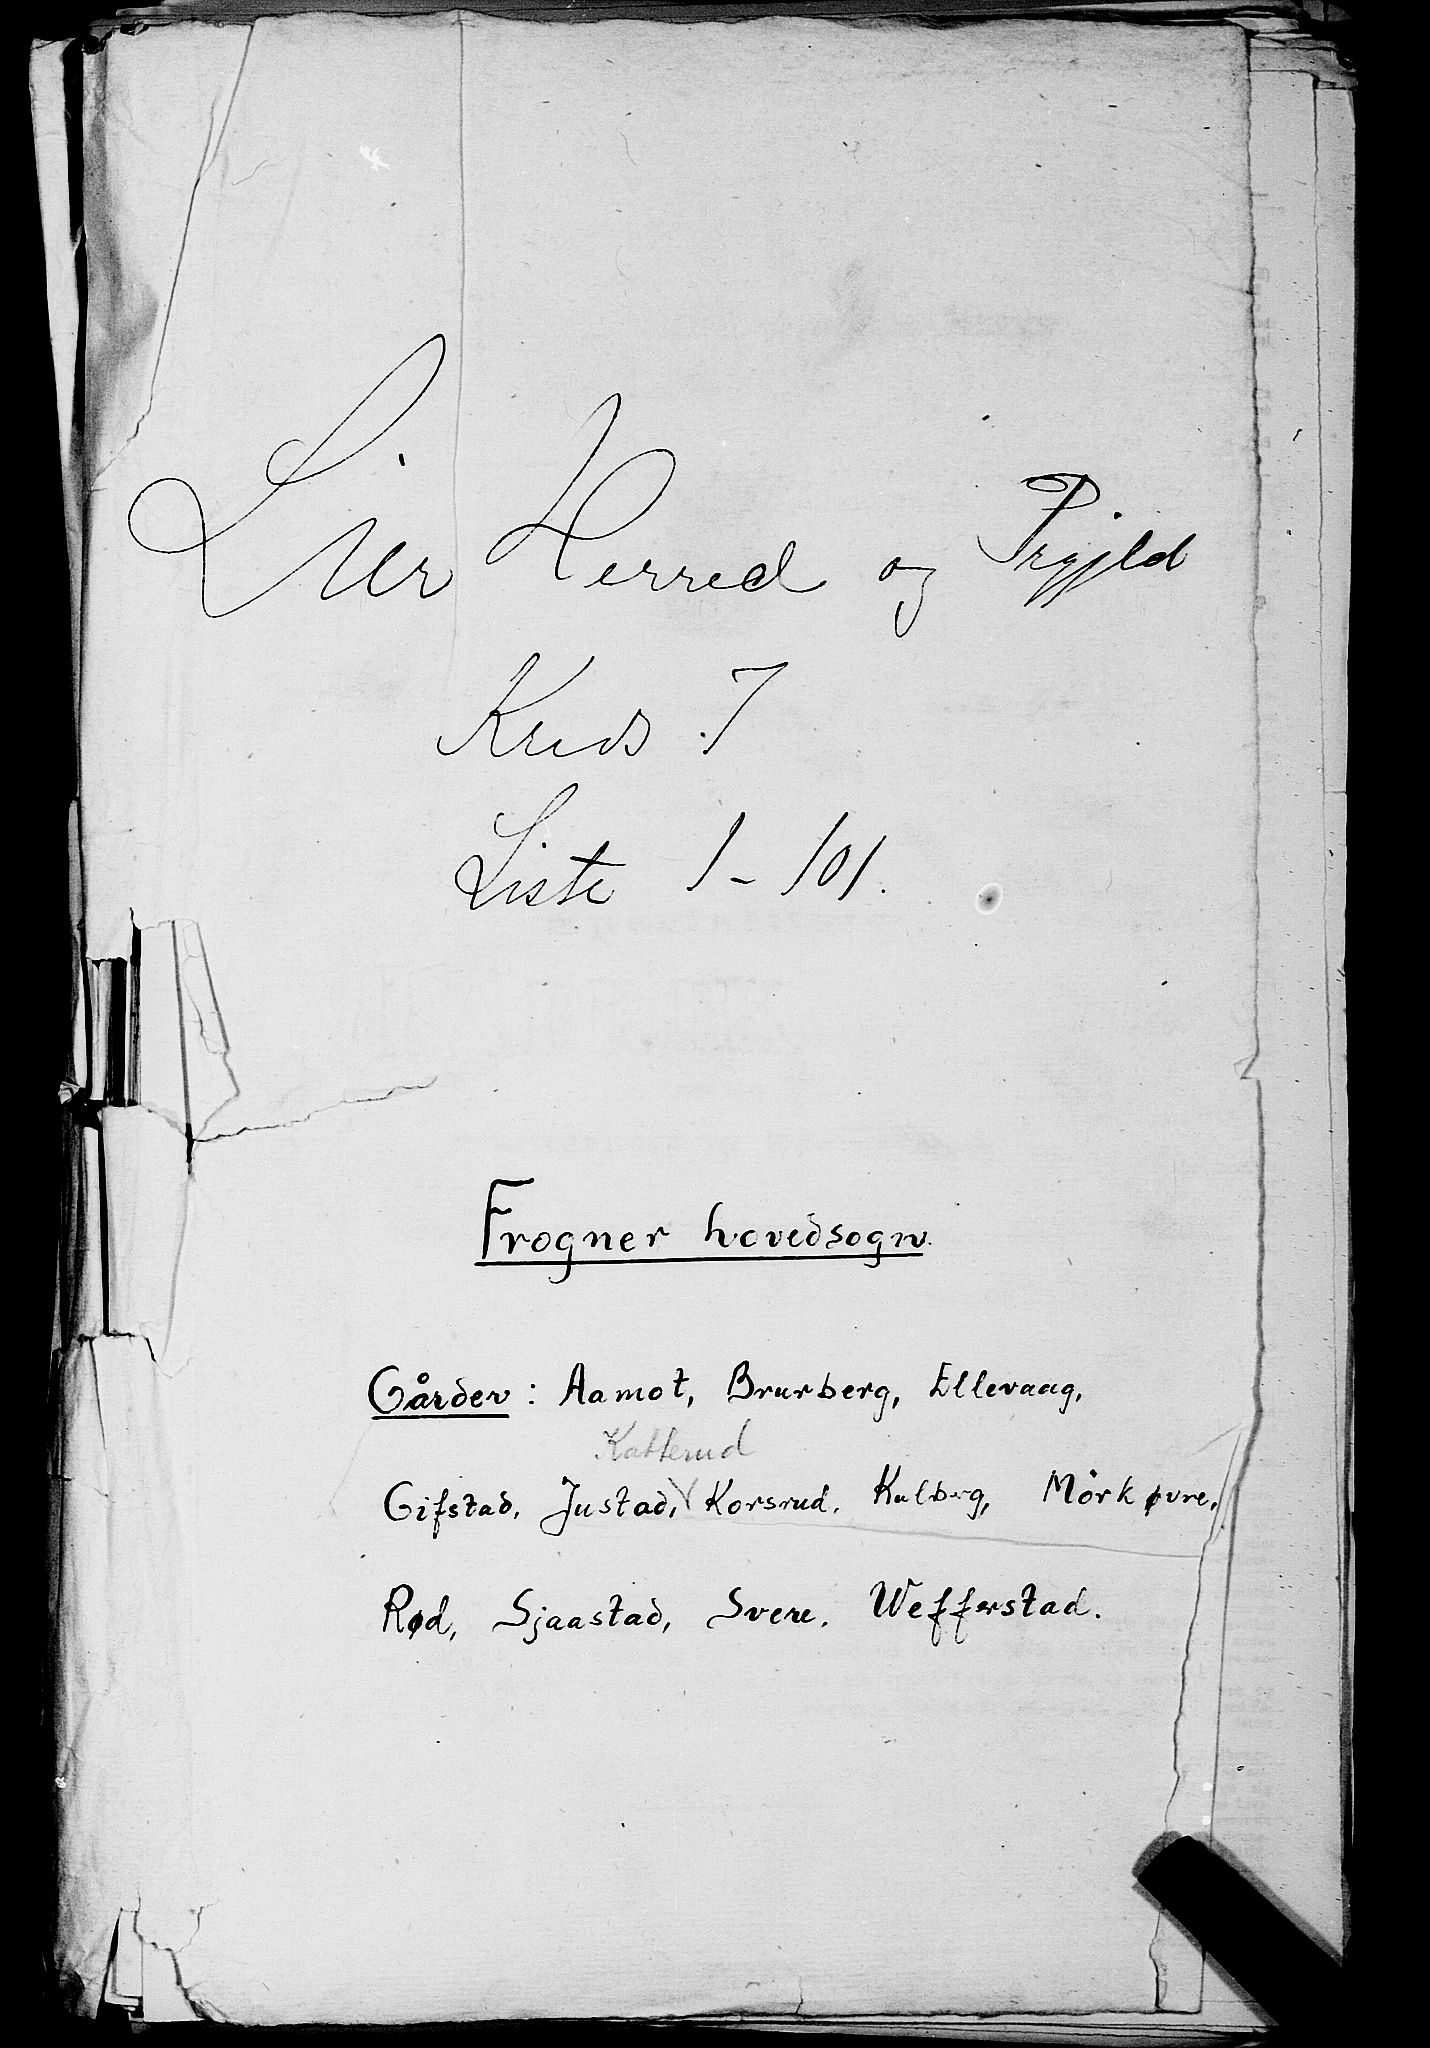 Lier Herred og Prgjld
Kreds 7
Liste 1 - 101.
Frogner hovedsogn.
Gårder : Aamot, Brurberg, Ellevaag,
Katterud
Gifstad, Justad, Korsrud, Kulbrg, Mörk øvre,
Rød, Sjaastad, Svere, Wefferstad.